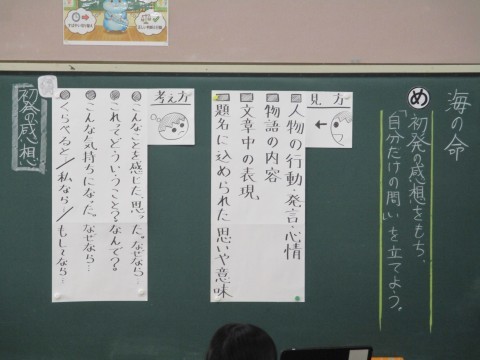 海の命
め 初発の感想をもち、
「自分だけの問い」を立てよう。
見方
人物の行動・発言・心情
物語の内容
文章中の表現
題名に込められた思いや意味
考え方
こんなことを感じた。思った。なぜなら…
これってどういうこと？なんで？
こんな気持ちになった。なぜなら…
くらべると／私なら／もし〜なら…
初発の感想